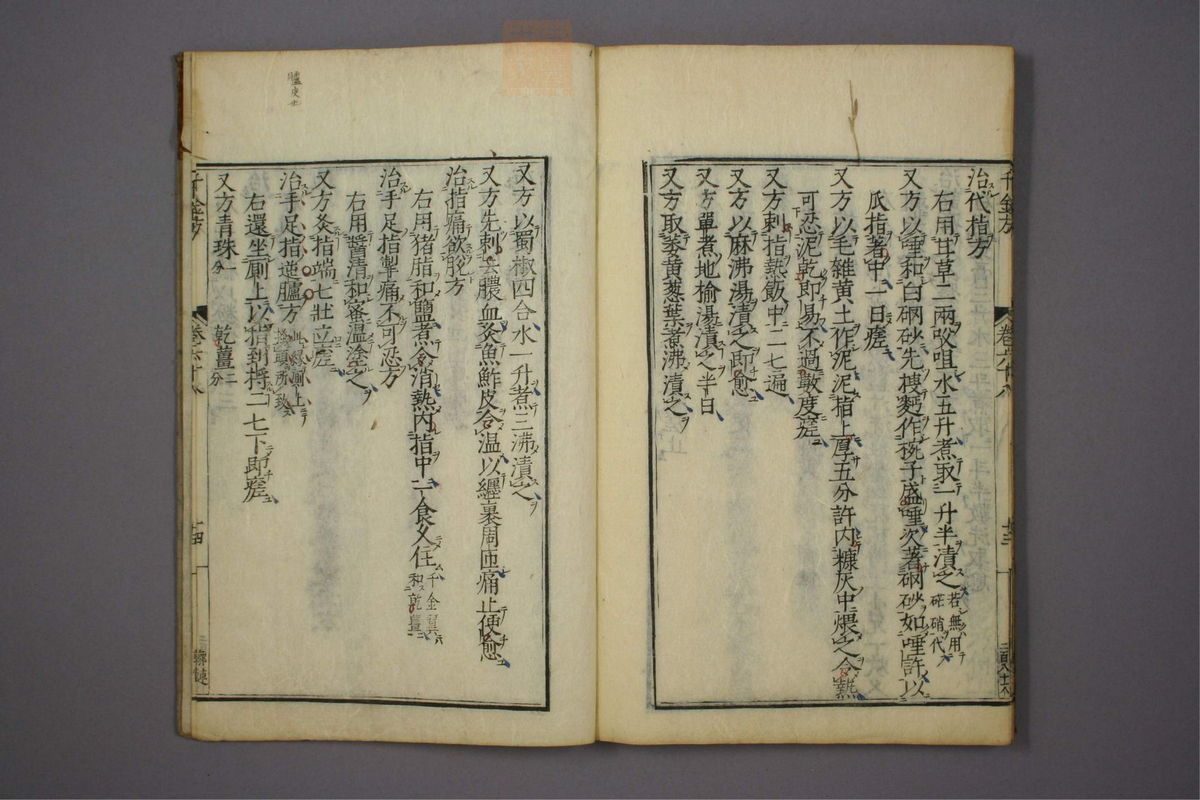 治代指方
右用甘草二兩㕮咀水五升煮取一升半漬之若無用芒硝代
又方以唾和白硇砂先摶麪作椀子盛唾次著硇砂如唾許以
爪指著中一日瘥
又方以毛雜黄土作泥泥指上厚五分許内糠灰中煨之令熱
可忍泥乾即易不過數度瘥
又方刺指熱飯中二七遍
又方以麻沸湯漬之即愈
又方單煮地榆湯漬之半日
又方取蔞黄葱葉煮沸漬之
千金方
卷六十八
又方以蜀椒四合水一升煮三沸漬之
又方先刺去膿血灸魚鮓皮令温以纏裹周匝痛止便愈
治指痛欲脫方
右用猪脂和鹽煮令消熱内指中一食久住千金翼和乾薑
治手足指掣痛不可忍方
右用醬清和蜜温塗之
又方灸指端七壯立瘥
治手足指逆臚方
右還坐厠上以指到捋二七下即瘥
又方青珠一分 乾薑二分
千金方
卷六十八
臚皮也